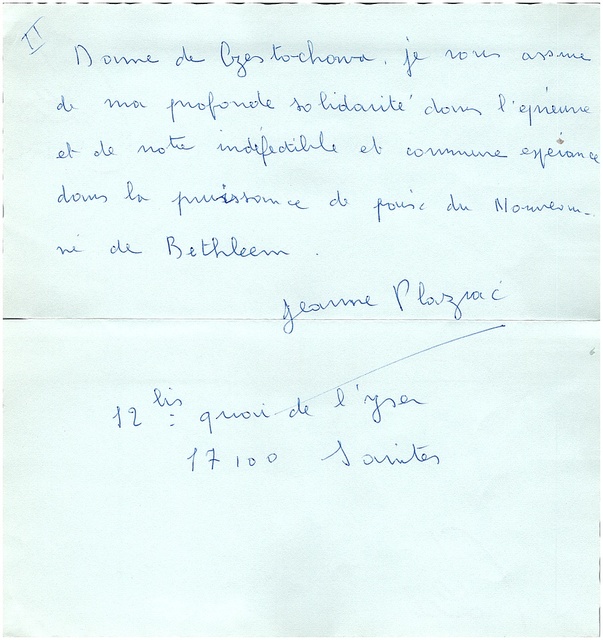 II
Dame de Czestochowa, je vous assure
de ma profonde solidarité dans l'épreuve
et de notre indéfectible et commune espérance
dans la puissance de paix du Nouveau-
né de Bethléem.
Jeanne Plazrac
12 bis quai de l'yser
17100 Saintes